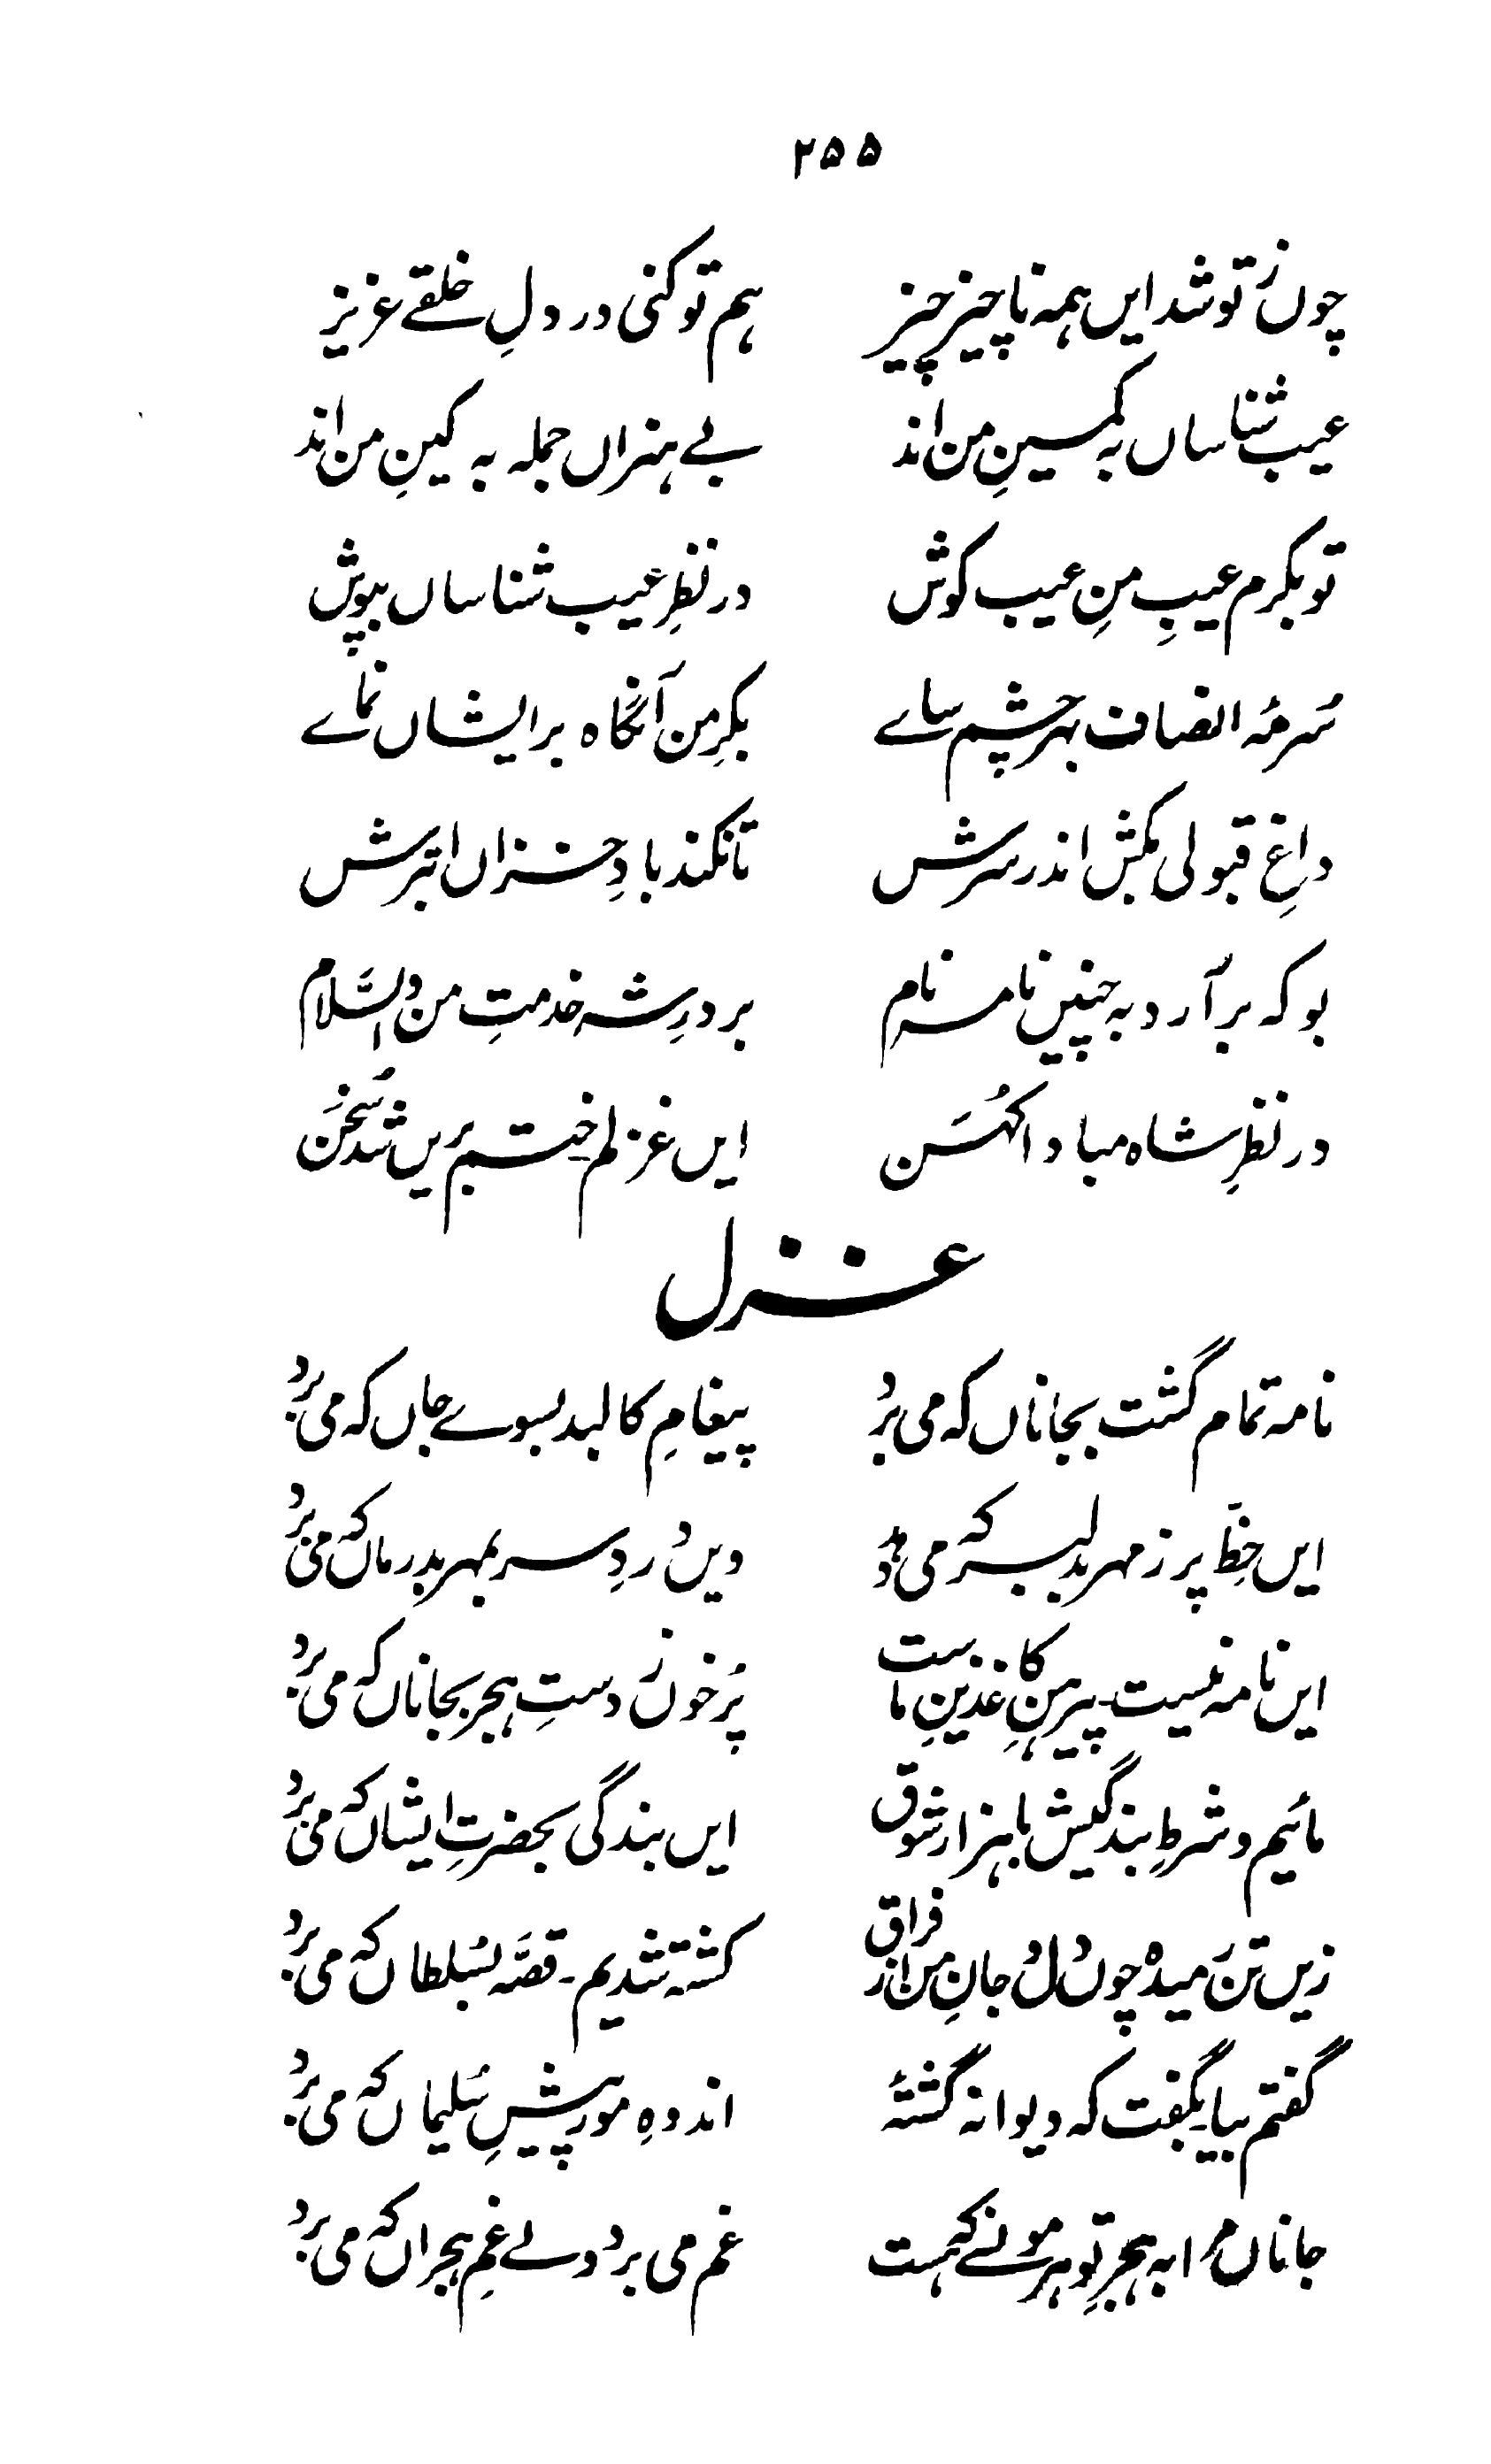 ۲۵۵
چوں ز تو شد ایں ہمہ ناچیز چیز ہم تو کنی در دلِ خلقے عزیز
عیب شناساں بہ کمینِ من اند بے ہنراں جملہ بہ کینِ من اند
تو بکرم عیبِ منِ عیب کوش در نظرِ عیب شناساں بپوش
سُرمۂ انصاف بہر چشم ساے بکرِ من آنگاہ بر ایشاں نماے
داغِ قبولی بکش اندر سرش تا نکند بادِ خزاں ابترش
بو کہ بر آرد بہ چنیں نامہ نام بر درِ شہ خدمتِ من والسَّلام
در نظرِ شاہ مبادا کہُن ایں غزلم ختم بریں شد سُخَن
غزل
نامہ تمام گشت بجاناں کہ می برد پیغامِ کالبد بسوے جاں کہ می بُرد
ایں خطِّ پر ز مہر بدلبر کہ می دہد ویں دردِ سر بمہر بدرماں کہ می بُرد
ایں نامہ نیست۔ پیرہنِ کاغذینِ ماست پُر خوں ز دستِ ہجر بجاناں کہ می بُرد
مائیم و شرطِ بندگیش با ہزار شوق ایں بندگی بحضرتِ ایشاں کہ می بُرد
زیں تن رمیدہ چوں دل و جانِ من از فراق کشتہ شدیم۔ قصّہ بسُلطاں کہ می بُرد
گفتم بیا۔ بگفت کہ دیوانہ گشتۂ اندوہِ مور پیشِ سُلیماں کہ می بُرد
جاناں مرا بہ ہجرِ تو ہر مونسے کہ ہست غم می برد ولے غمِ ہجراں کہ می بُرد